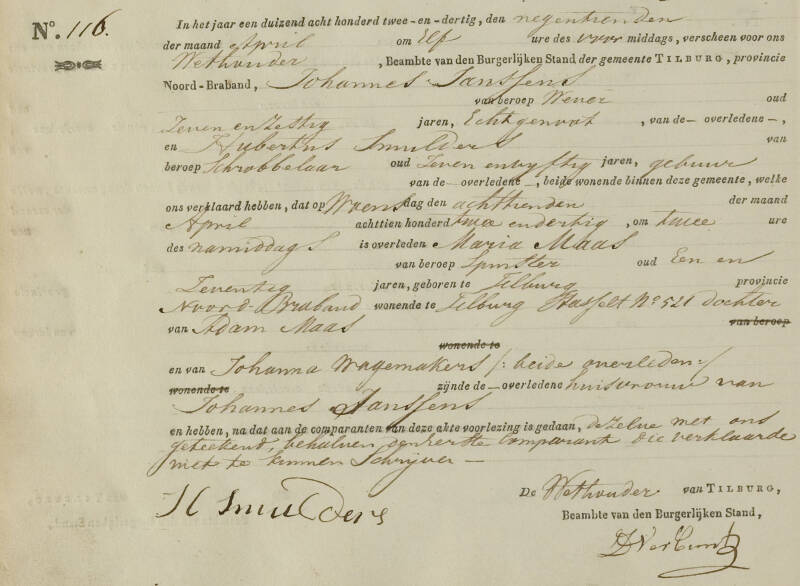 N.º 116.
In het jaar een duizend acht honderd twee-en-dertig, den negentienden
der maand April om Elf ure des voor middags, verscheen voor ons
Wethouder, Beambte van den Burgerlijken Stand der gemeente TILBURG, provincie
Noord-Braband, Johannes Janssens
van beroep Wever oud
Zeven en Zestig jaren, Echtgenoot, van de — overledene —,
en Hubertus Smulders van
beroep Schrobbelaar oud Zeven envyftig jaren, gebuur
van de — overledene —, beide wonende binnen deze gemeente, welke
ons verklaard hebben, dat op Woensdag den achttienden der maand
April achttien honderd twee endertig, om twee ure
des namiddags is overleden Maria Maas
van beroep Spinster oud Een en
Zeventig jaren, geboren te Tilburg provincie
Noord-Braband wonende te Tilburg Hasselt N.º 521 dochter
van Adam Maas van beroep
wonende te
en van Johanna Wagemakers /: beide overleden :/
wonende te zijnde de — overledene huisvrouw van
Johannes Janssens
en hebben, na dat aan de comparanten van deze akte voorlezing is gedaan, dezelve met ons
geteekend, behalven den eerste Comparant die verklaarde
niet te kunnen Schrijven —
H Smulders
De Wethouder van TILBURG,
Beambte van den Burgerlijken Stand,